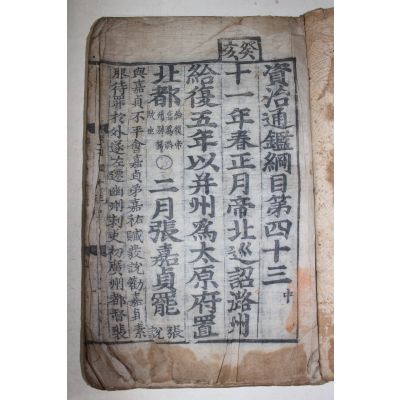 資治通鑑綱目第四十三 中
癸亥
十一年春正月帝北巡詔潞州
給復五年以并州爲太原府置
北都
二月張嘉貞罷
張說
與嘉貞不平會嘉貞弟嘉祐贓發說勸嘉貞素
服待罪於外遂左遷幽州刺史初廣州都督裴